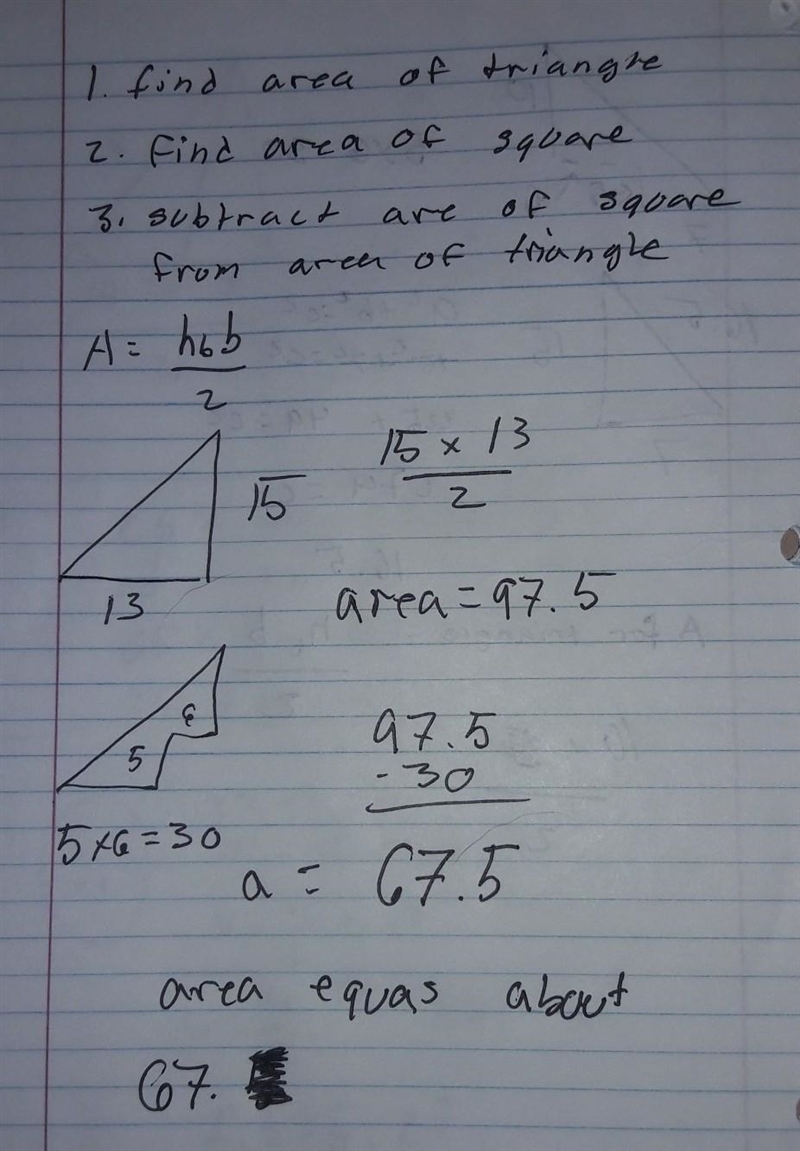 1. find area of triangle
2. find area of square
3. subtract are of square
from area of triangle
A = hbb
2
15
13
15 x 13
2
area = 97.5
6
5
5 x 6 = 30
97.5
- 30
a = 67.5
area equas about
67.